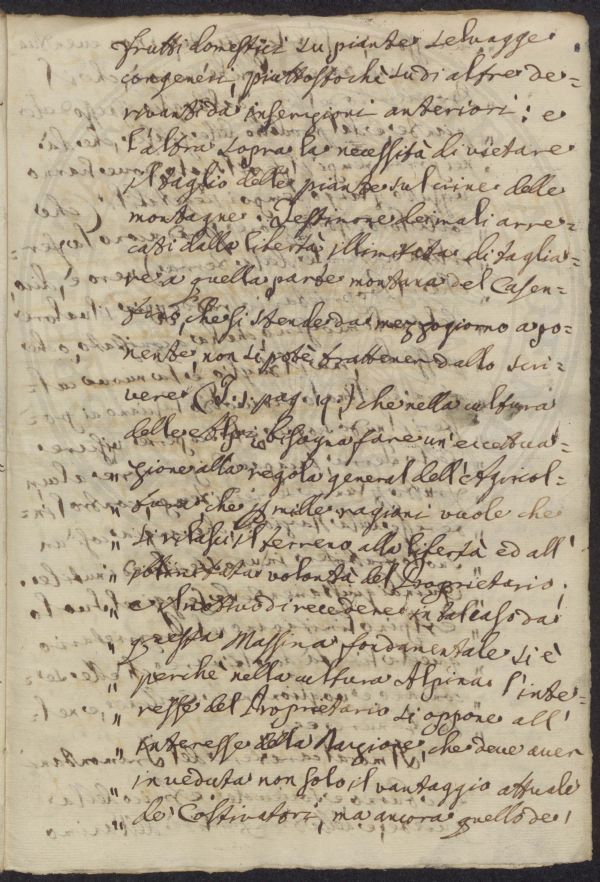 frutti domestici su piante selvagge
congeneri, piuttostochè su di altre de=
rivanti da inserizioni anteriori: e
l'altra sopra la necessità di vietare
il taglio delle piante sul crine delle
montagne. Testimone dei mali arre=
cati dalla libertà illimitata di taglia=
re a quella parte montana del Casen=
tino, che si stende da mezzogiorno a po=
nente non si potè trattener dallo scri=
vere (T. 1. pag. 19.) che nella cultura
delle Alpi bisogna fare un'eccettua=
" zione alla regola general dell'Agricol=
" tura che p mille ragioni vuole che
" si rilasci il terreno alla libertà ed all'
" volontà del Proprietario;
" e di recedere in tal caso da
" questa Massima fondamentale si è
" perchè nella cultura Alpina l'inte=
" resse del Proprietario si oppone all'
" interesse della Nazione, che deve aver
" in veduta non solo il vantaggio attuale
" de' Coltivatori, ma ancora quello de'